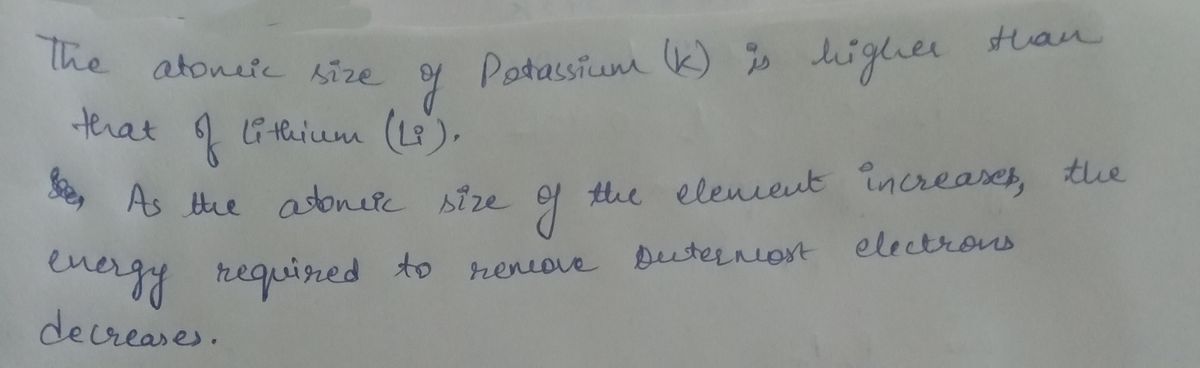 The atomic size of Potassium (K) is higher than
that of Lithium (Li).
As the atomic size of the element increases, the
energy required to remove outermost electrons
decreases.